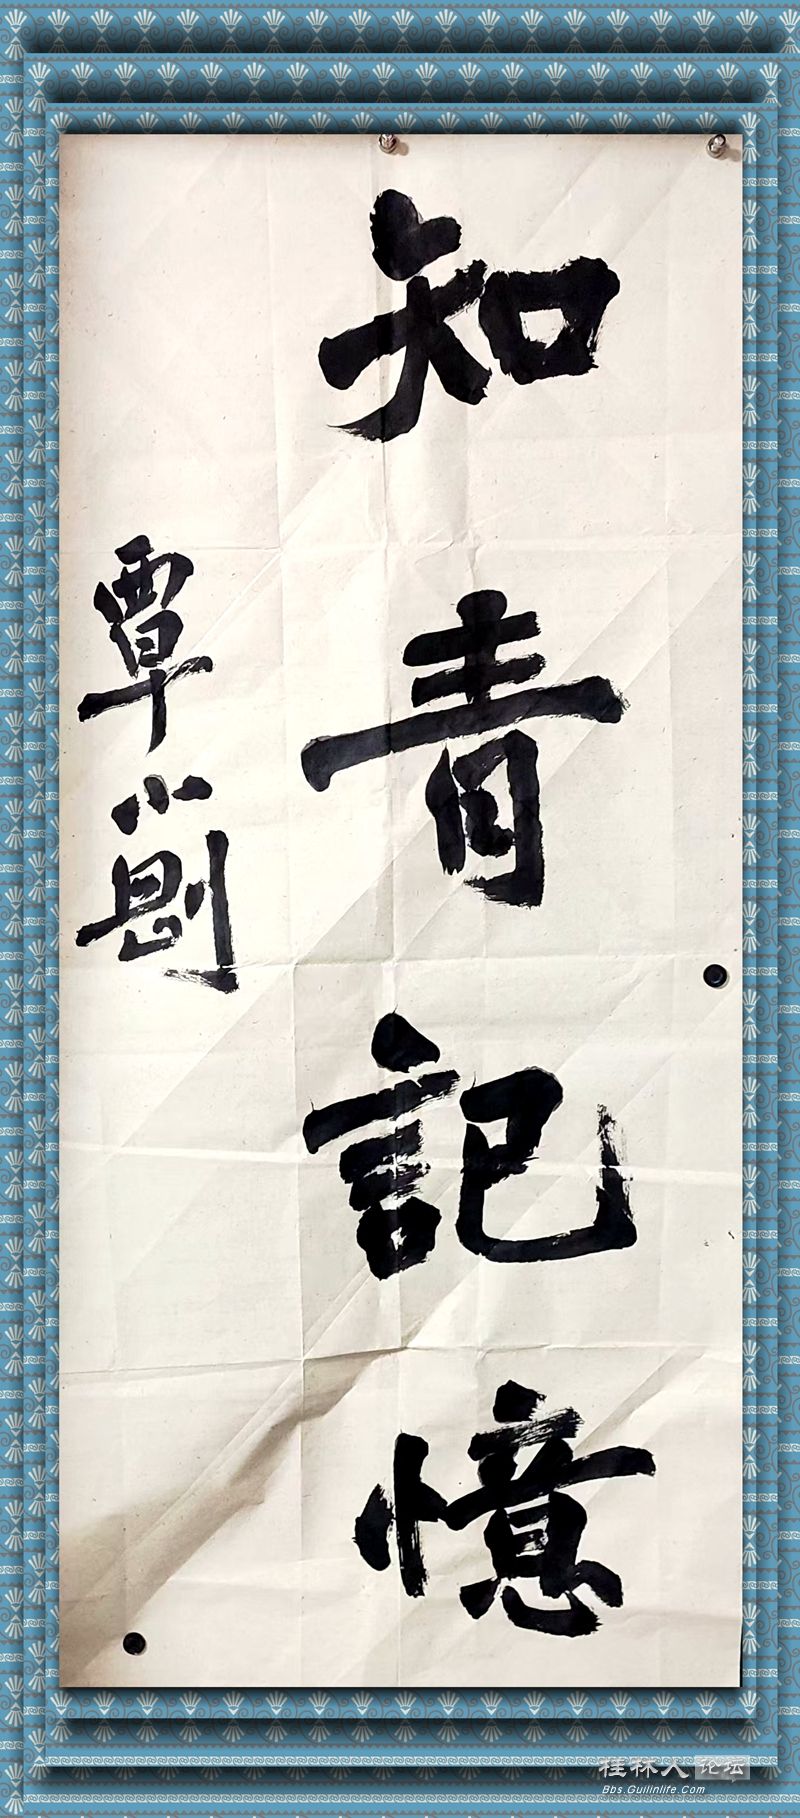 知青記憶
覃小
桂林人论坛
Bbs.Guilinlife.Com